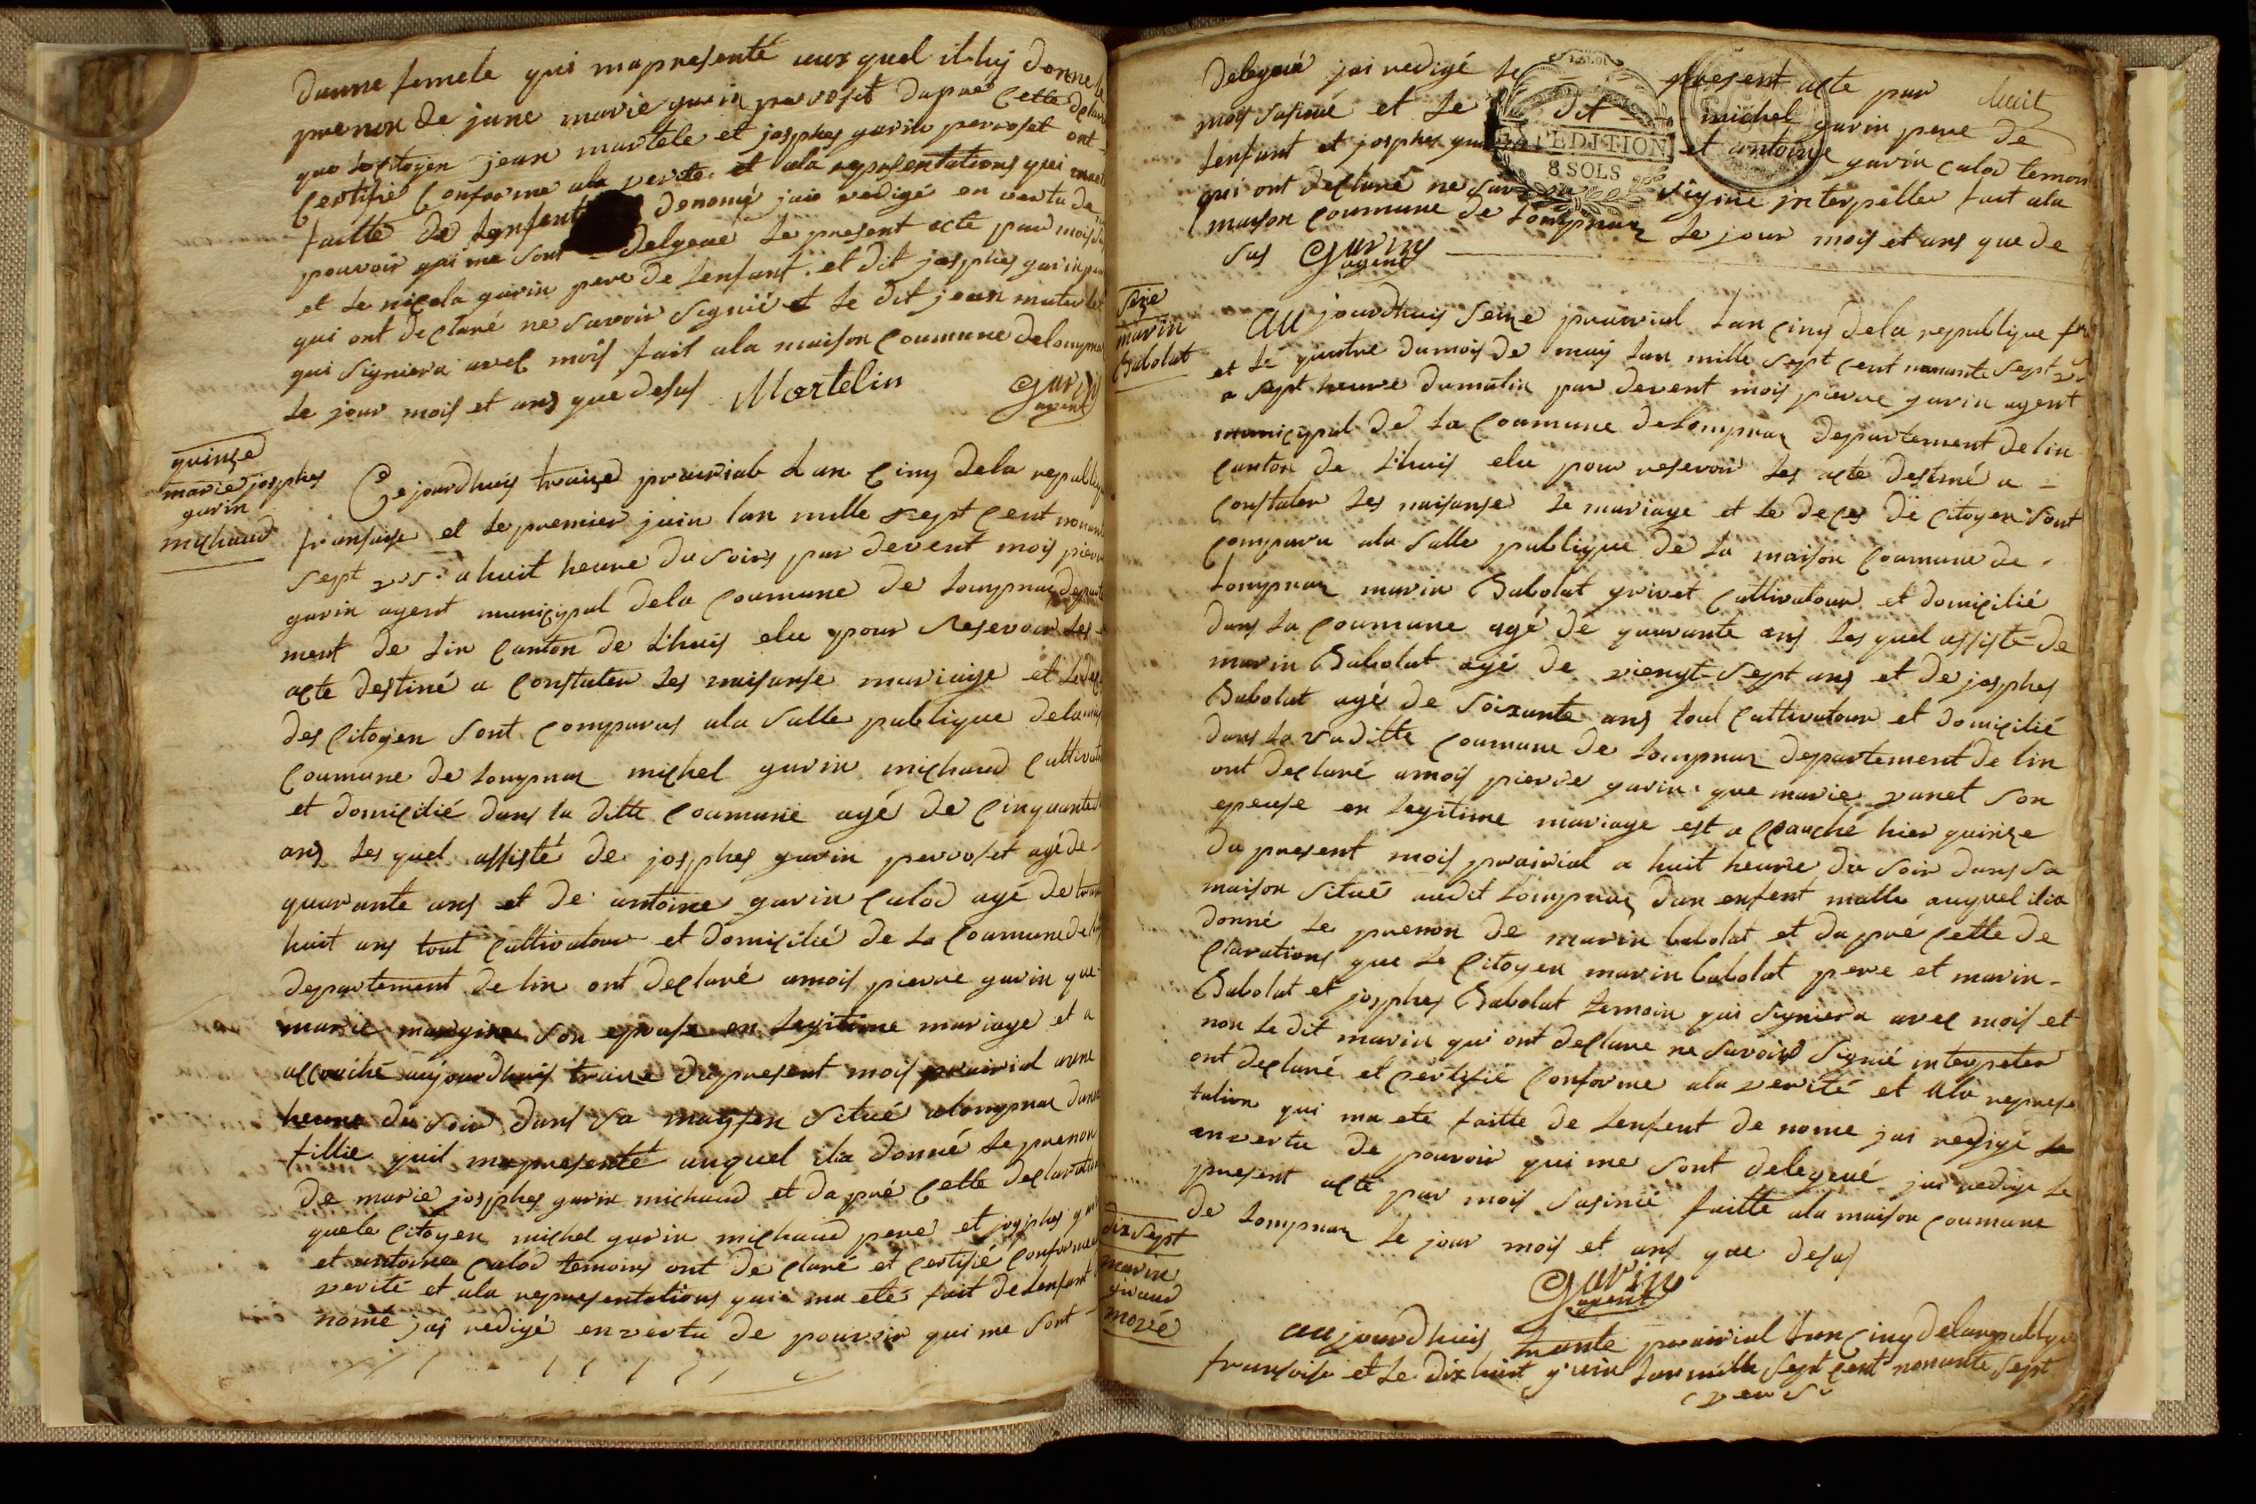 dunne femele qui mapresenté auxquel il luy donne le
prenon de jane marie gurin perroset dapré Cette declara
que le Citoyen jean martele et josphes gurin perroset ont
Certifié Conforme ala verite et ala representations qui ma
faitte de lenfent denomé jaie redigé en vertu de
pouvoir qui me sont delgeué le present acte par mois
et le nicola gurin pere de lenfant et dit josphes gurin
qui ont declaré ne savoir signié et le dit jean martele
qui signiera avec mois fait ala maison Coumune delompnas
le jour mois et ans que desus Martelin Gurin
agent
quinze
marie josphes
gurin
michaud
Cejourdhuis traize prairial lan Cinq dela republiq
fransaise et le premier juin lan mille sept Cent nonante
sept v. s. a huit heure du soirs par devent mois pierre
gurin agent municipal dela Coumune de lompnas departe
ment de lin Canton de lhuis elu pour resevoir les
acte destiné a Constater les naisanse mariaige et le dece
des Citoyen sont Comparus ala salle publique dela mai
Coumune de lompnas michel gurin michaud Cultivateur
et domicilié dans la ditte Coumune agé de Cinquante
ans lesquel assisté de josphes gurin perroset agé de
quarante ans et de antoine gurin Calod agé de trante
huit ans tout Cultivatour et domicilié de la Coumune de
departement de lin ont declaré amois pierre gurin que
marie son epouse en legitime mariage et a
accouché aujourdhuis traize du present mois prairial aune
heure du soir dans sa maysen situé alompnas dune
fillie quil mapresenté auquel ila donné le prenon
de marie josphes gurin michaud et dapré Cette declaration
quele Citoyen michel gurin michaud pere et josphes gurin
et antoine Calod temoins ont declaré et Certifié Conforme
verité et ala representations qui ma eté fait de lenfant
nomé jai redigé envertu de pouvoir qui me sont
delegeué jai redigé le present acte par huit
mois susiné et le dit michel gurin pere de
lenfant et josphes gurin et antoine gurin Calod temoin
qui ont declaré ne savoir signié interpeller fait ala
maison Coumune de lompnas le jour mois et ans que de
sus Gurin
agent
EXPEDITION
8 SOLS
seize
marin
Babolat
Au jourdhuis seize prairial lan Cinq dela republique fra
et le quatre dumois de may lan mille sept Cent nonante sept v. s.
a sept heure dumatin par devent mois pierre gurin agent
municipal de la Coumune delompnas departement de lin
Canton de lhuis elu pour resevoir les acte destiné a
Constater les naisanse le mariage et le deces de Citoyen sont
Comparu ala salle publique de la maison Coumune de
lompnas marin Babolat grivet Cultivatour et domicilié
dans la Coumune agé de quarante ans lesquel assisté de
marin Babolat agé de viengt-sept ans et de josphes
Babolat agé de soixante ans tout Cultivatour et domicilié
dans la suditte Coumune de lompnas departement de lin
ont declaré amois pierre gurin que marie vanet son
epeuse en legitime mariage est accouché hier quinze
du present mois prairial a huit heure du soir dans sa
maison situé audit lompnas dun enfent malle auquel ila
donné le prenon de marin babolat et dapré Cette de
Clarations que le Citoyen marin babolat pere et marin
Babolat et josphes Babolat temoin qui signiera avec mois et
non le dit marin qui ont declare ne savoird signié interpeter
ont declaré et Certifié Conforme ala verité et Ala represe
tation qui ma eté faitte de lenfent de nome jai redigé le
envertu de pouvoir qui me sont delegeué jai redigé le
present acte par mois susinié faitte ala maison Coumune
de lompnas le jour mois et ans que desus
Gurin
agent
dix sept
marie
giraud
moré
aujourdhuis trante prairial lan Cinq delarepublique
fransoise et le dix huit juin lan mille sept Cent nonante sept
v. s.